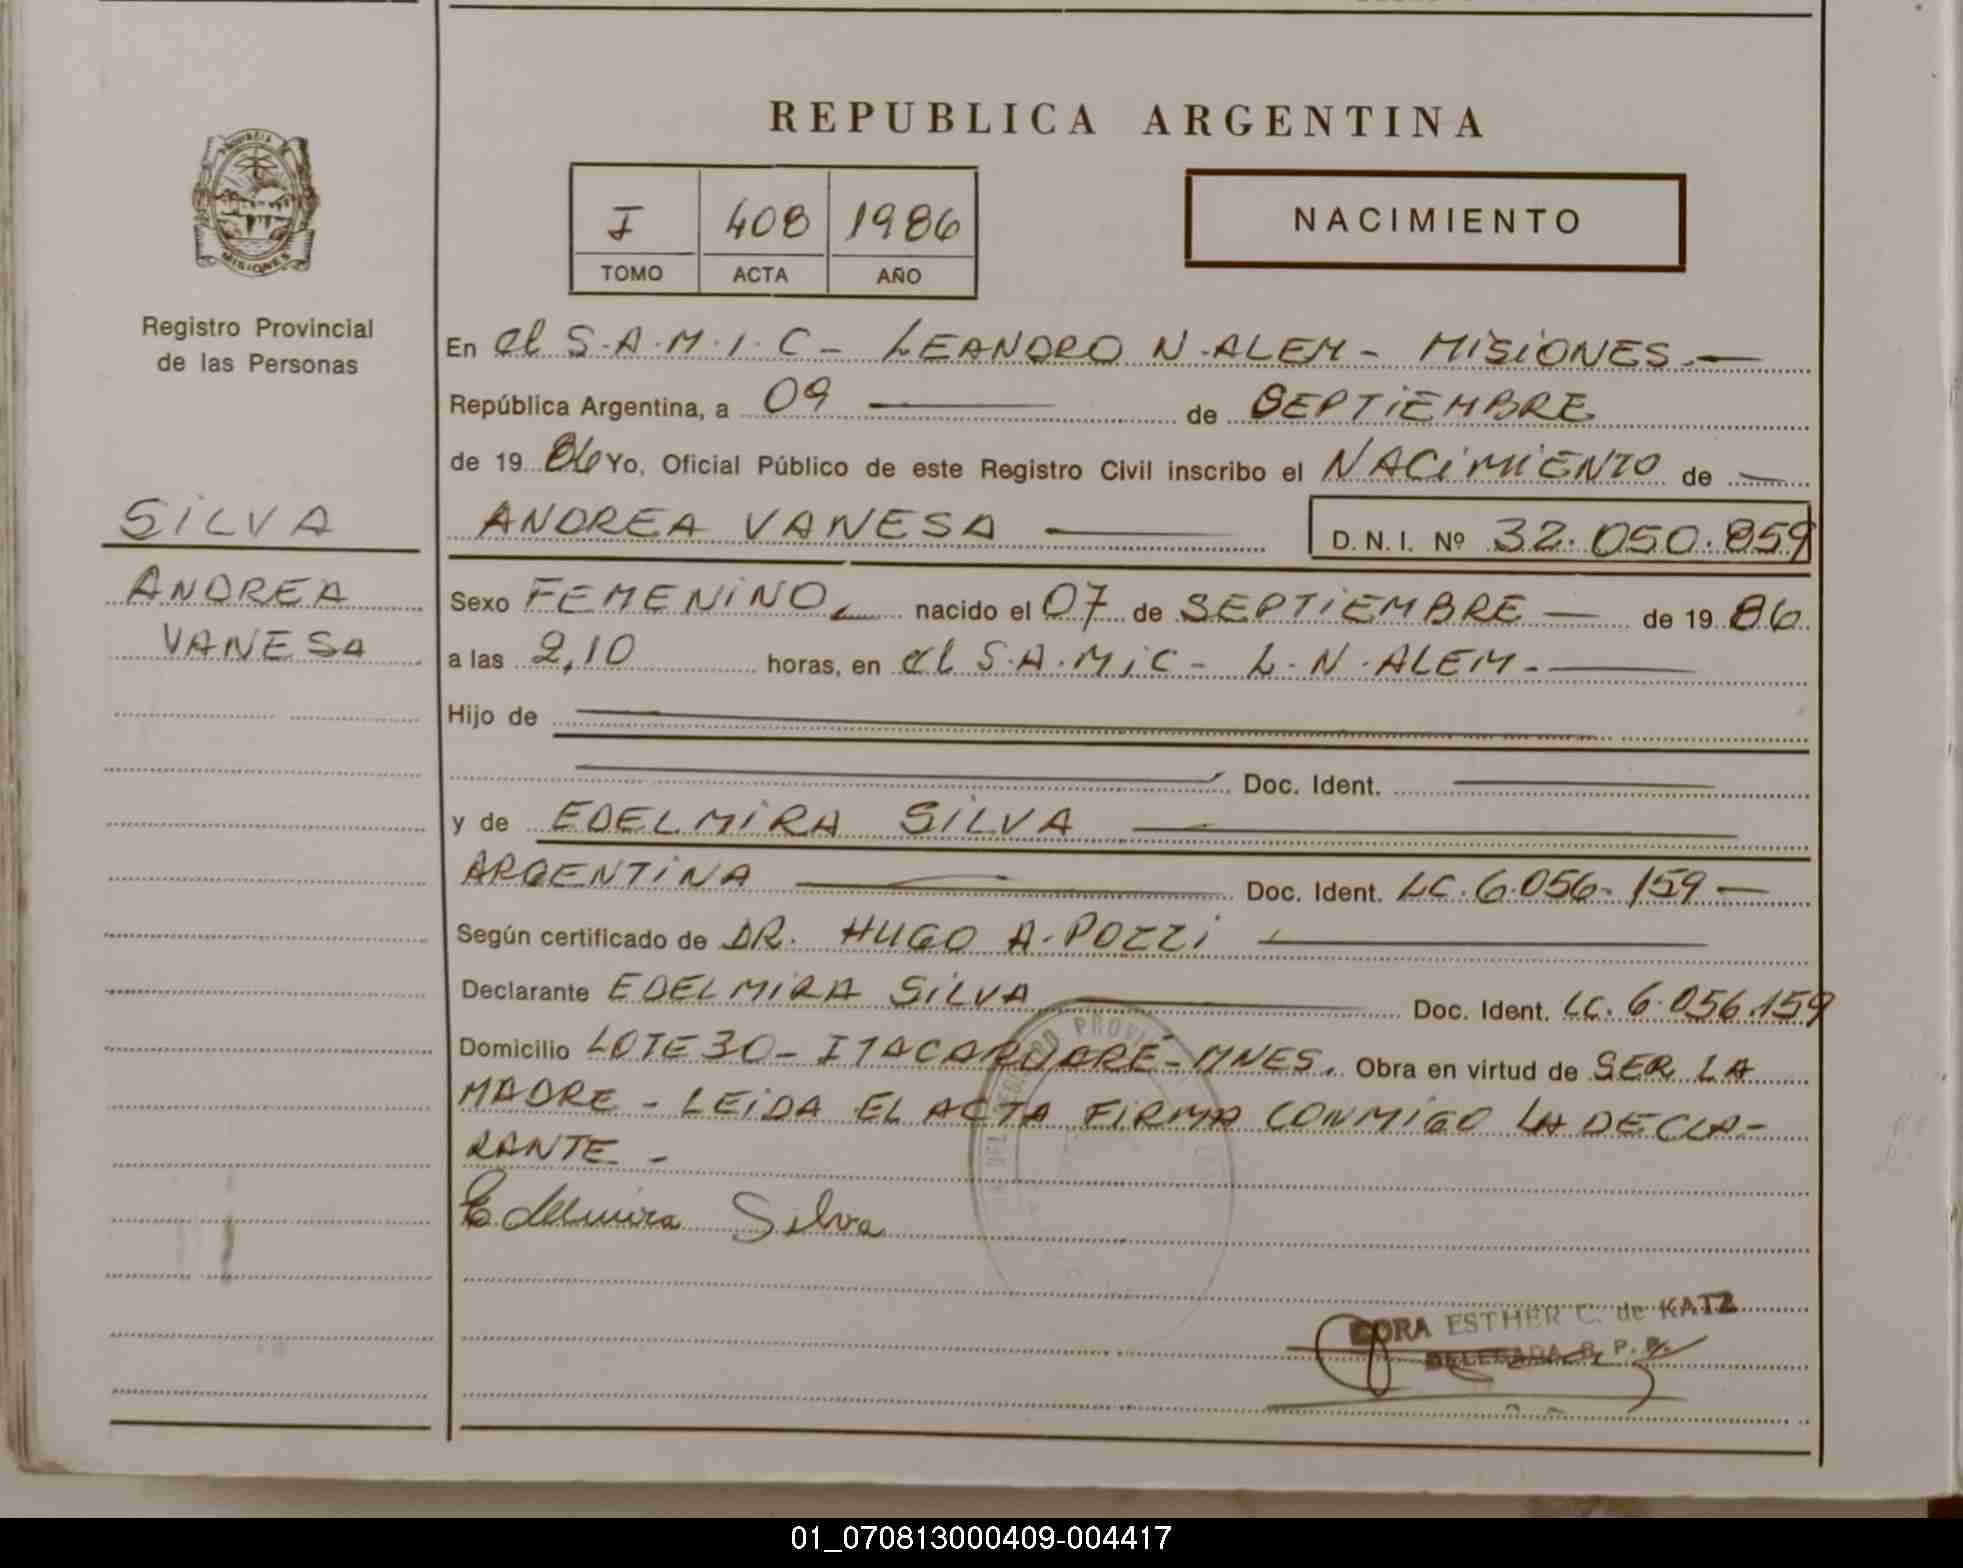 REPUBLICA ARGENTINA
PROVINCIA
MISIONES
Registro Provincial
de las Personas
I 408 1986
TOMO ACTA AÑO
NACIMIENTO
En el S.A.M.I.C - LEANDRO N. ALEM - MISIONES.-
República Argentina, a 09 de SEPTIEMBRE
de 19 86 Yo, Oficial Público de este Registro Civil inscribo el NACIMIENTO de
SILVA
ANDREA VANESA D. N. I. Nº 32.050.859
ANDREA
VANESA
Sexo FEMENINO nacido el 07 de SEPTIEMBRE de 19 86
a las 2,10 horas, en el S.A.MiC - L.N.ALEM.-
Hijo de
Doc. Ident.
y de EDELMIRA SILVA
ARGENTINA Doc. Ident. LC.6.056.159 -
Según certificado de DR. HUGO A. POZZI
Declarante EDELMIRA SILVA Doc. Ident. LC.6.056.159
Domicilio LOTE 30 - ITACARUARÉ - MNES. Obra en virtud de SER LA
MADRE - LEIDA EL ACTA FIRMA CONMIGO LA DECLA-
RANTE -
Edelmira Silva
PROVI
DORA ESTHER C. de KATZ
DELEGADA R. P. P.
01_070813000409-004417